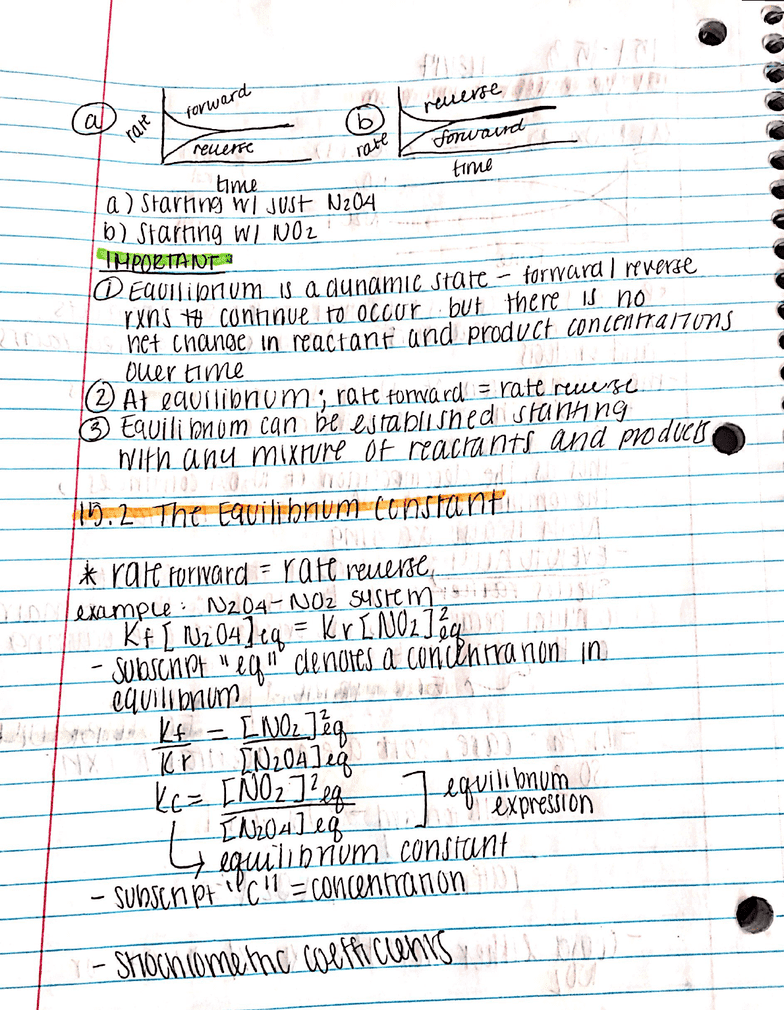 a rate forward reverse time
b rate reverse forward time
a) Starting w/ just N2O4
b) Starting w/ NO2
IMPORTANT:
① Equilibrium is a dynamic state - forward/reverse
rxns to continue to occur but there is no
net change in reactant and product concentrations
over time
② At equilibrium; rate forward = rate reverse
③ Equilibrium can be established starting
with any mixture of reactants and products
15.2 The Equilibrium Constant
* rate forward = rate reverse
example: N2O4-NO2 system
Kf[N2O4]eq = Kr[NO2]²eq
- subscript "eq" denotes a concentration in
equilibrium
Kf = [NO2]²eq
Kr [N2O4]eq
Kc = [NO2]²eq ] equilibrium
[N2O4]eq expression
↳ equilibrium constant
- subscript "C" = concentration
- stiochiometric coefficients